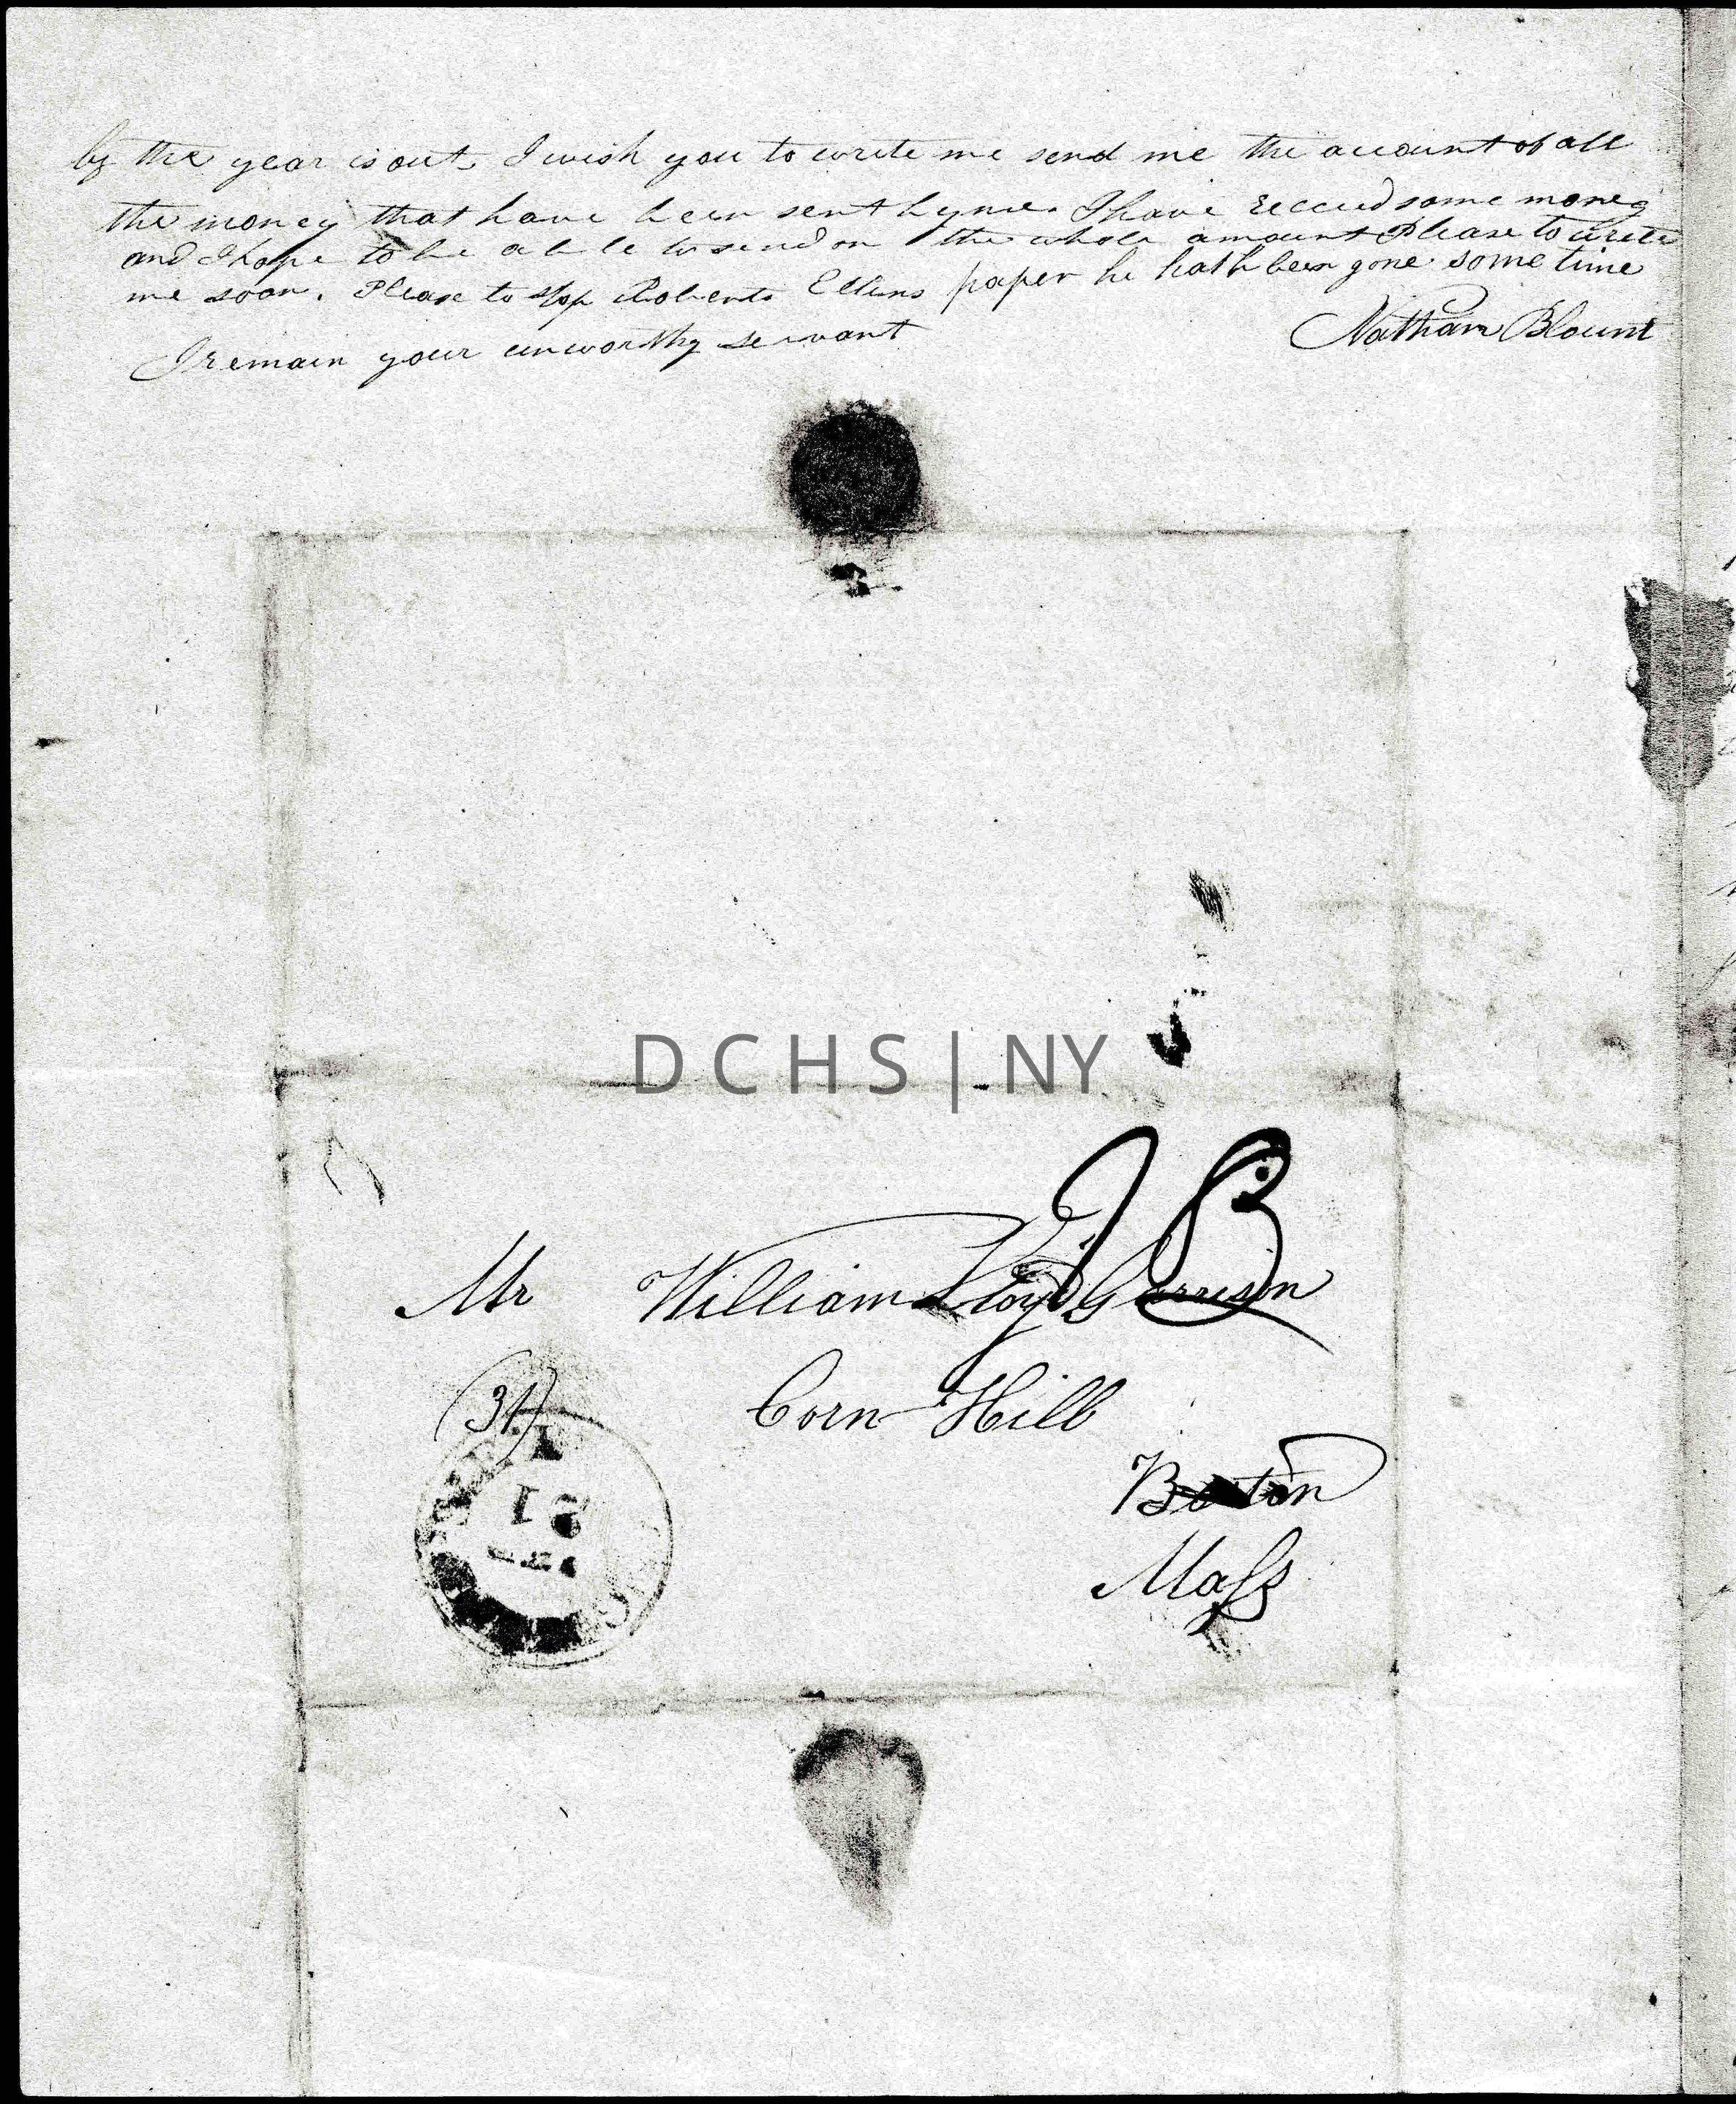 by the year is out. I wish you to write me send me the account of all
the money that have been sent by me. I have recced some money
and I hope to be able to send on the whole amount Please to write
me soon. Please to stop Roberts Ellens paper he hath been gone some time
I remain your unworthy servant
Nathan Blount
D C H S | NY
Mr William Lloyd Garrison
(31)
Corn Hill
Boston
Mass
21